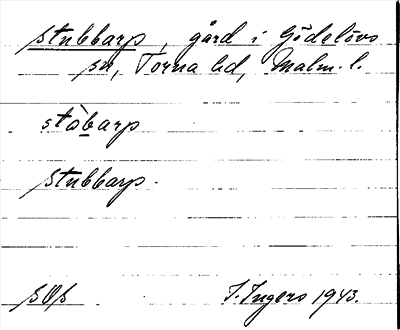 Stubbarp, gård i Gödelövs
sn, Torna hd, Malm. l.
stòbarp
Stubbarp.
I. Ingers 1943.